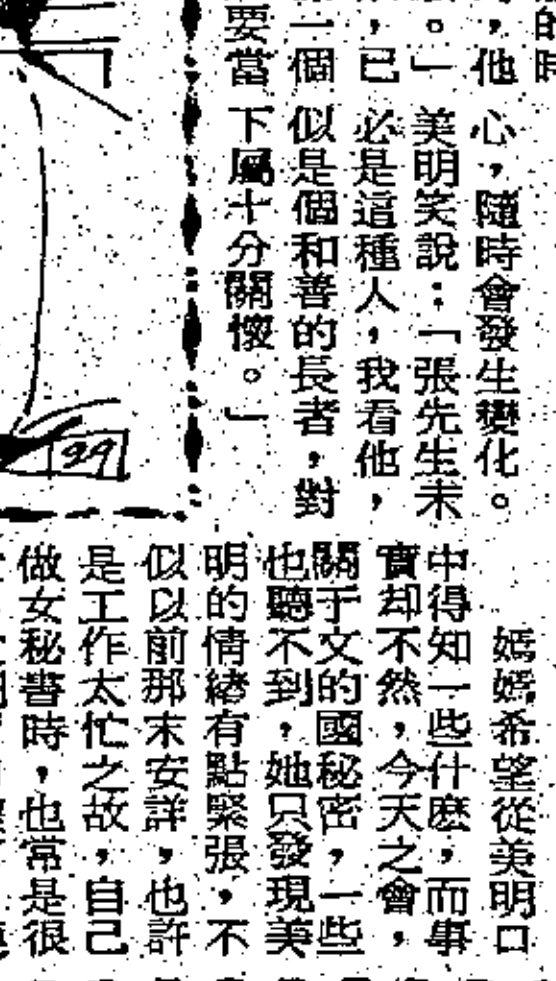 的時
，他心，隨時會發生變化。
。」美明笑說：「張先生未
，已必是這種人，我看他，
一個似是個和善的長者，對
要當下屬十分關懷。」
29
媽媽希望從美明口
中得知一些什麽，而事
實却不然，今天之會，
關于文的國秘密，一些
也聽不到，她只發現美
明的情緒有點緊張，不
似以前那末安詳，也許
是工作太忙之故，自己
做女秘書時，也常是很